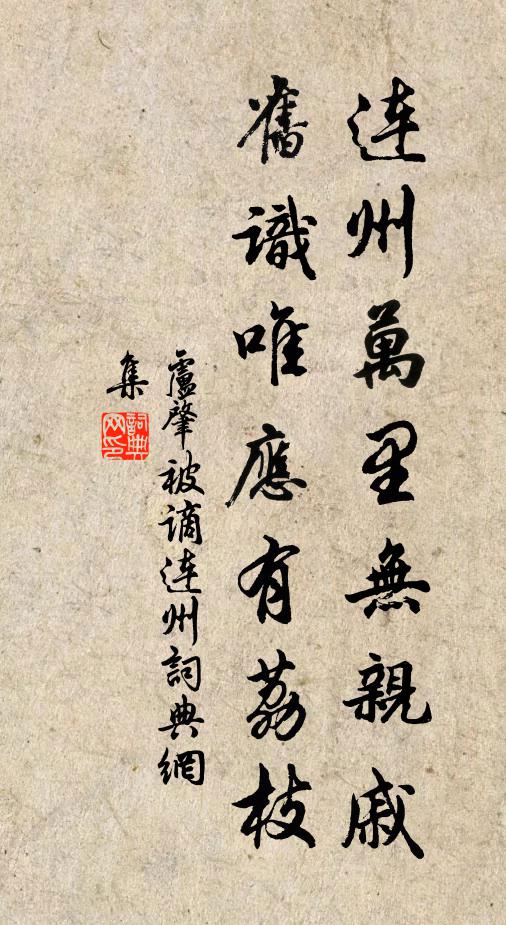 连州萬里無親戚
舊識唯應有荔枝
盧肇被谪连州詞典網
集
詞典网印